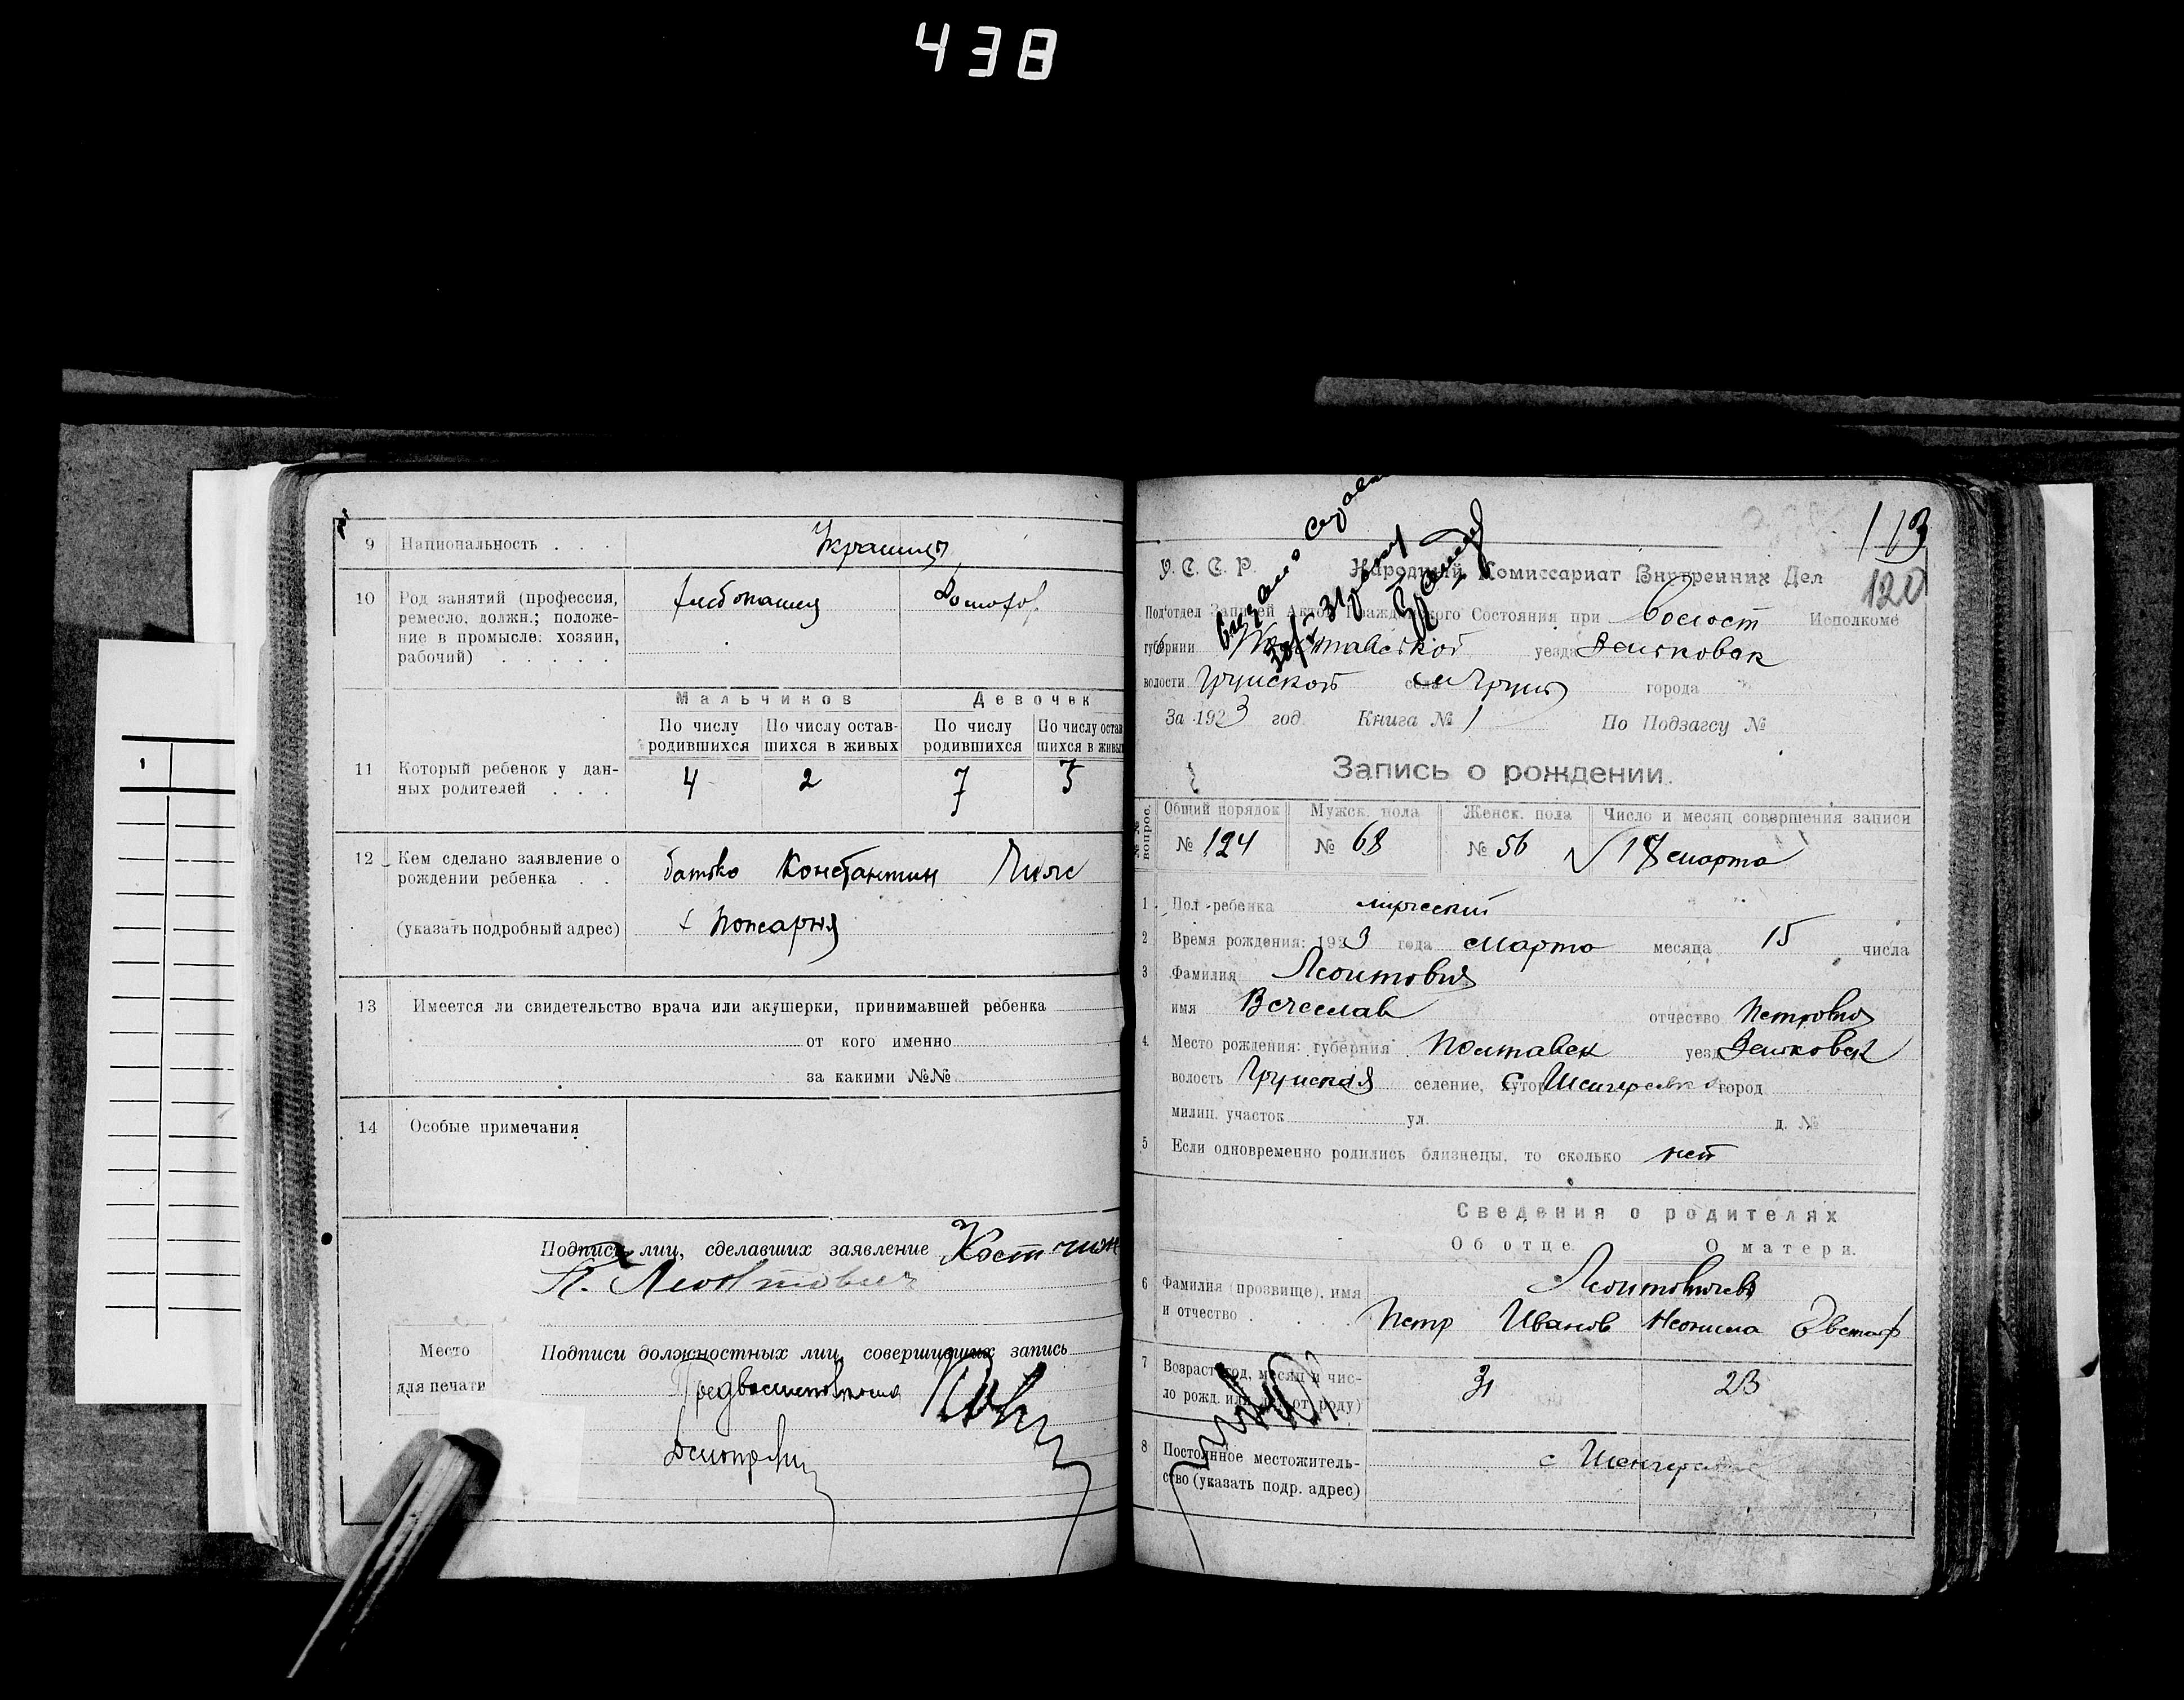 438
9 Национальность . . . Украинц
10 Род занятий (профессия,
ремесло, должн.; положе-
ние в промысле: хозяин,
рабочий) . . . . .
хлібопашец Домохоз.
Мальчиков Девочек
По числу родившихся По числу остав-шихся в живых По числу родившихся По числу остав-шихся в живы
11 Который ребенок у дан-
ных родителей . . . 4 2 7 5
12 Кем сделано заявление о
рождении ребенка . . батько Константин
(указать подробный адрес)
13 Имеется ли свидетельство врача или акушерки, принимавшей ребенка
от кого именно
за какими №№
14 Особые примечания
Подписи лиц, сделавших заявление
П. Леонтович
Место
для печати
Подписи должностных лиц, совершивших запись
Делопр.
113
120
У. С. С. Р. Народный Комиссариат Внутренних Дел
Подотдел Записей Актов Гражданского Состояния при Волост Исполкоме
губернии Полтавской уезда Зеньковск
волости Грунской села м Грунь города
За 1923 год. Книга № 1 По Подзагсу №
Запись о рождении.
№№ вопрос. Общий порядок Мужск. пола Женск. пола Число и месяц совершения записи
№ 124 № 68 № 56 17 марта
1 Пол ребенка мужеский
2 Время рождения: 1923 года марта месяца 15 числа
3 Фамилия Леонтович
имя Вячеслав отчество Петрович
4. Место рождения: губерния Полтавск уезд Зеньковск
волость Грунская селение, хутор город
милиц. участок ул. д. №
5 Если одновременно родились близнецы, то сколько нет
Сведения о родителях
Об отце. О матери.
6 Фамилия (прозвище), имя
и отчество . . . .
Леонтовичев
Петр Иванов Неонила Евстаф
7 Возраст (год, месяц и чис-
ло рожд. или лет от роду) 31 23
8 Постоянное местожитель-
ство (указать подр. адрес)